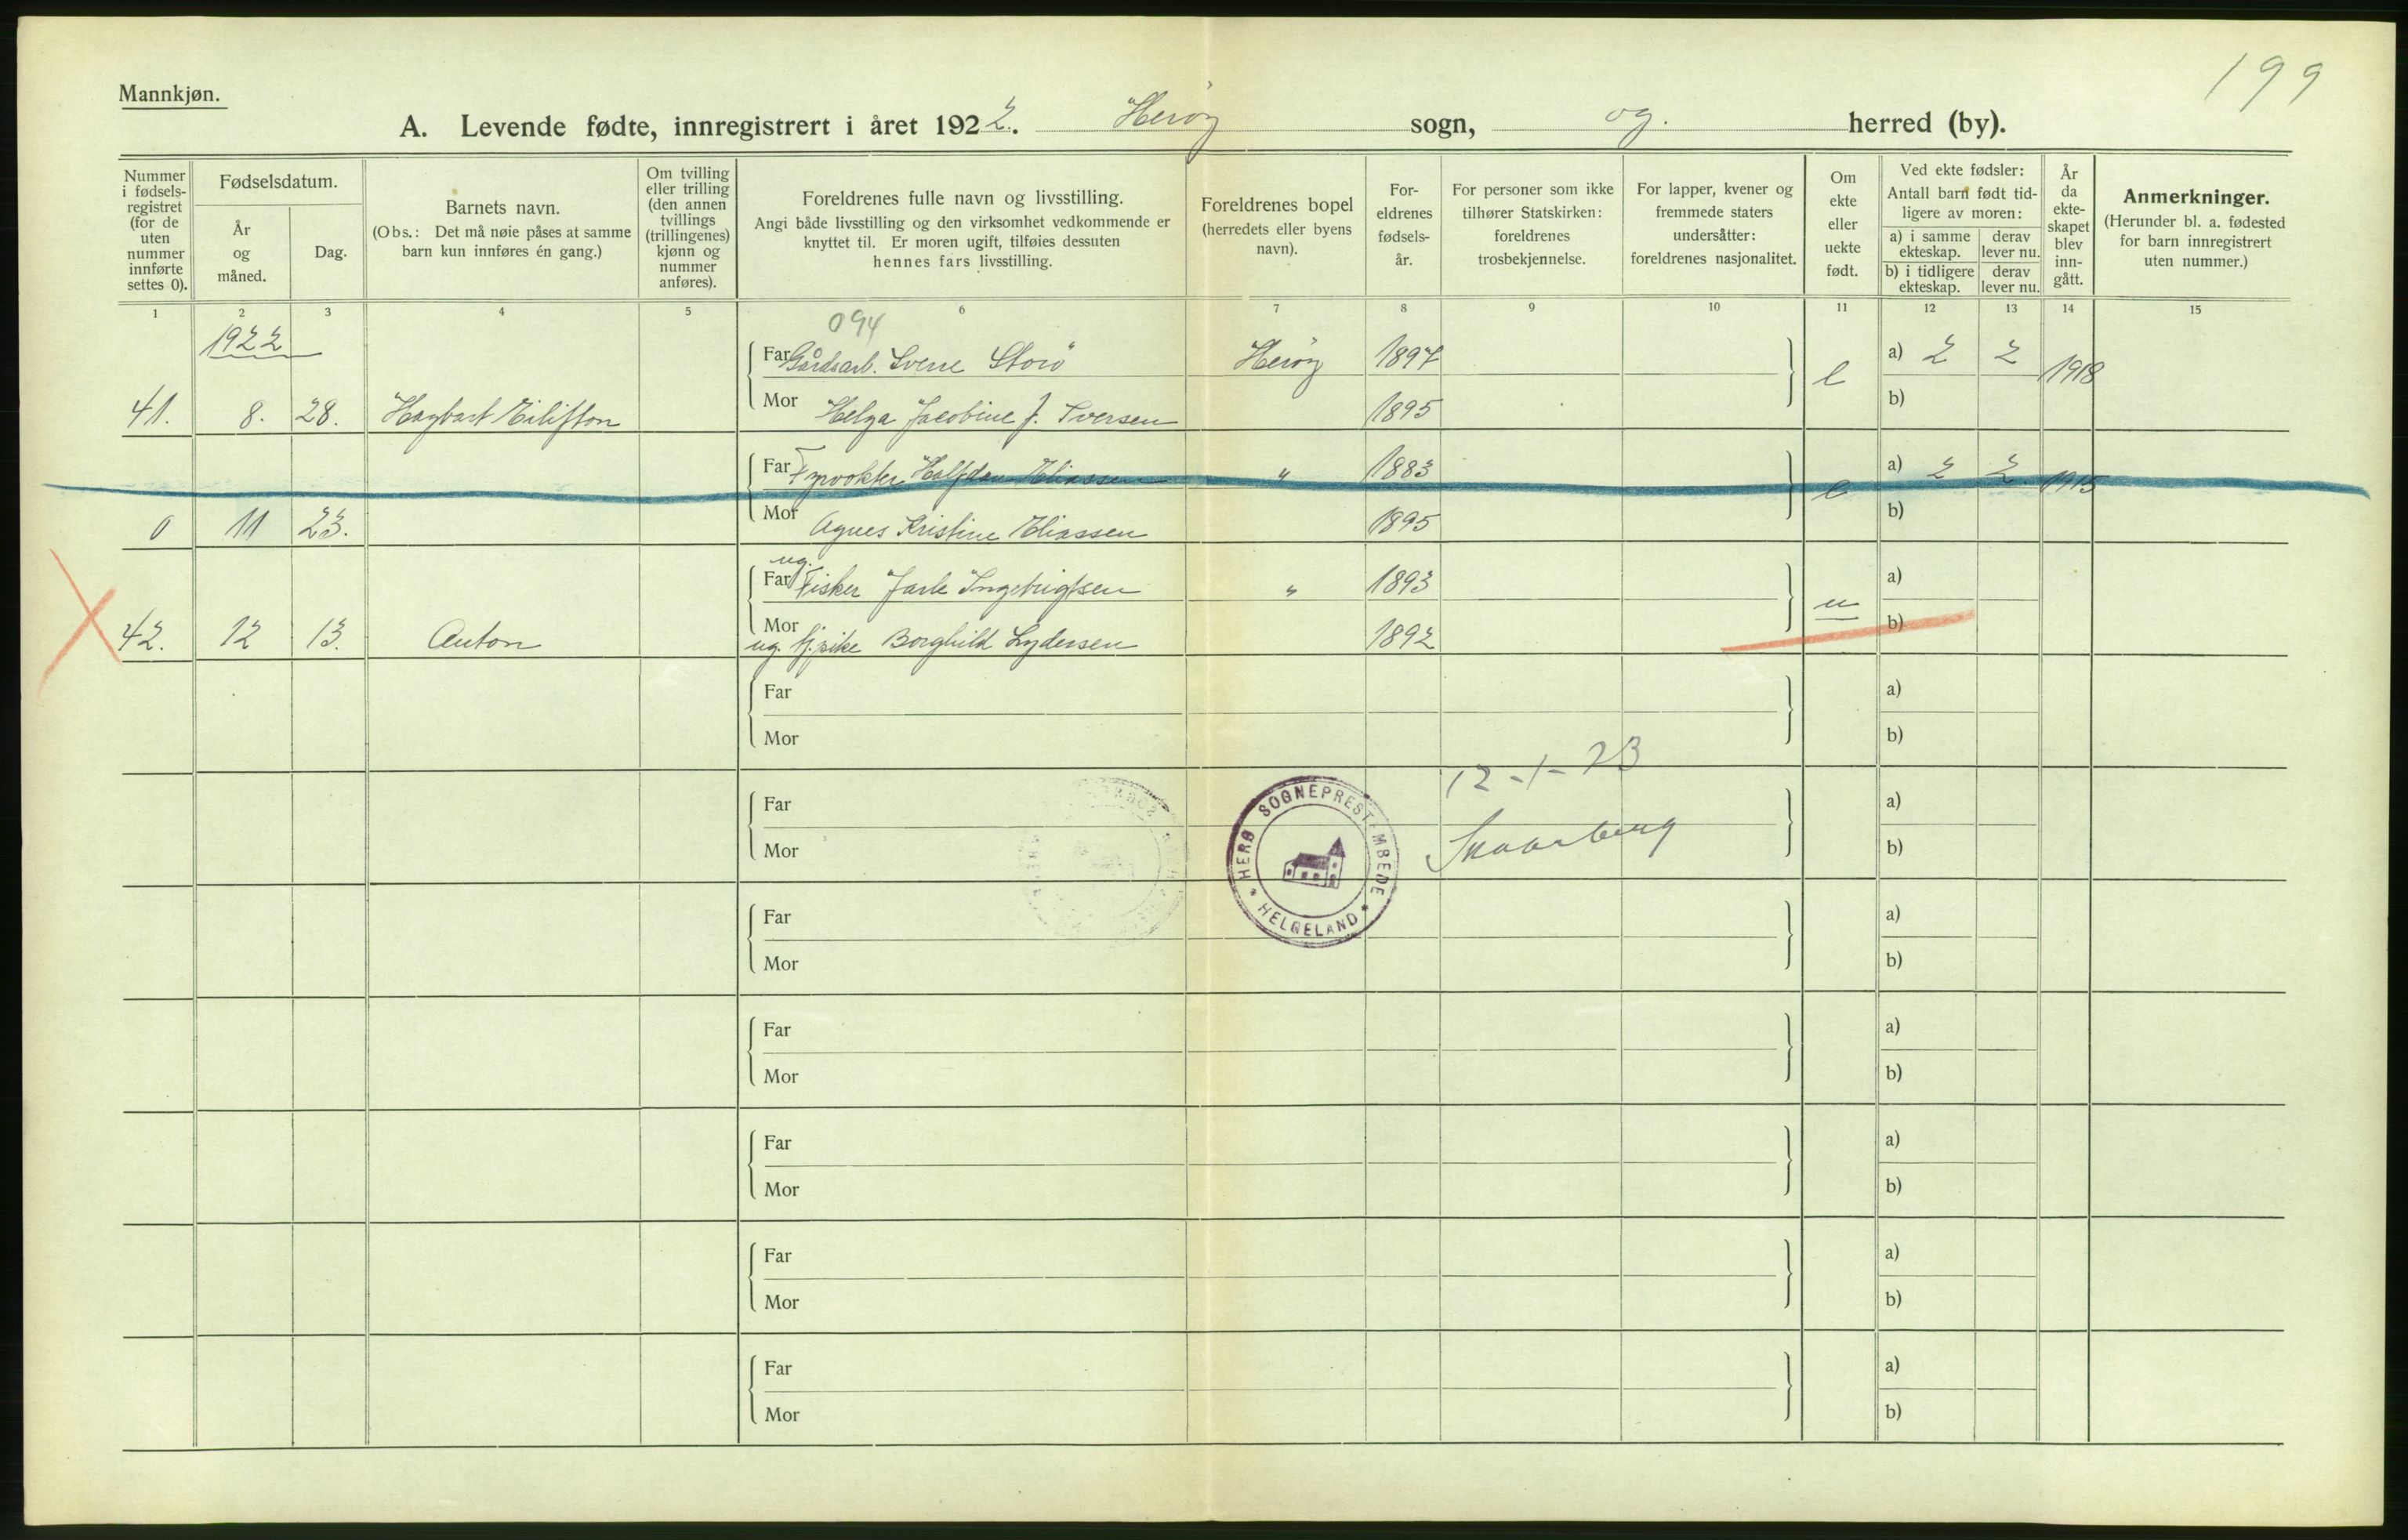 199
Mannkjøn.
A. Levende fødte, innregistrert i året 1922. Herøy sogn, og. herred (by).
Nummer i fødsels-registret (for de uten nummer innførte settes 0).
Fødselsdatum.
År og måned.
Dag.
Barnets navn.
(Obs.: Det må nøie påses at samme barn kun innføres én gang.)
Om tvilling eller trilling (den annen tvillings (trillingenes) kjønn og nummer anføres).
Foreldrenes fulle navn og livsstilling.
Angi både livsstilling og den virksomhet vedkommende er knyttet til. Er moren ugift, tilføies dessuten hennes fars livsstilling.
Foreldrenes bopel (herredets eller byens navn).
For-eldrenes fødsels-år.
For personer som ikke tilhører Statskirken: foreldrenes trosbekjennelse.
For lapper, kvener og fremmede staters undersåtter: foreldrenes nasjonalitet.
Om ekte eller uekte født.
Ved ekte fødsler: Antall barn født tid-ligere av moren:
a) i samme ekteskap.
derav lever nu.
b) i tidligere ekteskap.
derav lever nu.
År da ekte-skapet blev inn-gått.
Anmerkninger.
(Herunder bl. a. fødested for barn innregistrert uten nummer.)
1 2 3 4 5 6 7 8 9 10 11 12 13 14 15
1922
094
Far Gårdsarb. Sverre Storö Herøy 1897 e a) 2 2 1918
41. 8. 28. Hagbart Eilifson Mor Helga Jacobine J. Iversen 1895 b)
Far Fyrvokter Halfdan Eliassen " 1883 e a) 2 2 1915
0 11 23. Mor Agnes Kristine Eliassen 1895 b)
ug.
Far Fisker Jarle Ingebrigtsen " 1893 u a)
42. 12 13. Anton Mor ug. tj.pike Borghild Lydersen 1892 b)
Far a)
Mor b)
12-1-23
Far a)
Skaarberg
Mor b)
HERØ SOGNEPRESTEMBEDE
* HELGELAND *
Far a)
Mor b)
Far a)
Mor b)
Far a)
Mor b)
Far a)
Mor b)
Far a)
Mor b)